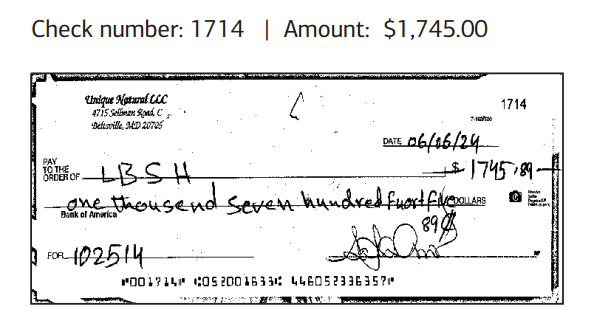 Check number: 1714 | Amount: $1,745.00
Unique Natural LLC
1714
4715 Sellman Road, C
Beltsville, MD 20705
DATE 06/06/24
PAY
TO THE
ORDER OF LBSH $ 1745.89
one thousend seven hundred fuort five DOLLARS
Bank of America
89¢
FOR 102514
⑈001714⑈ ⑆052001633⑆ 446052336357⑈